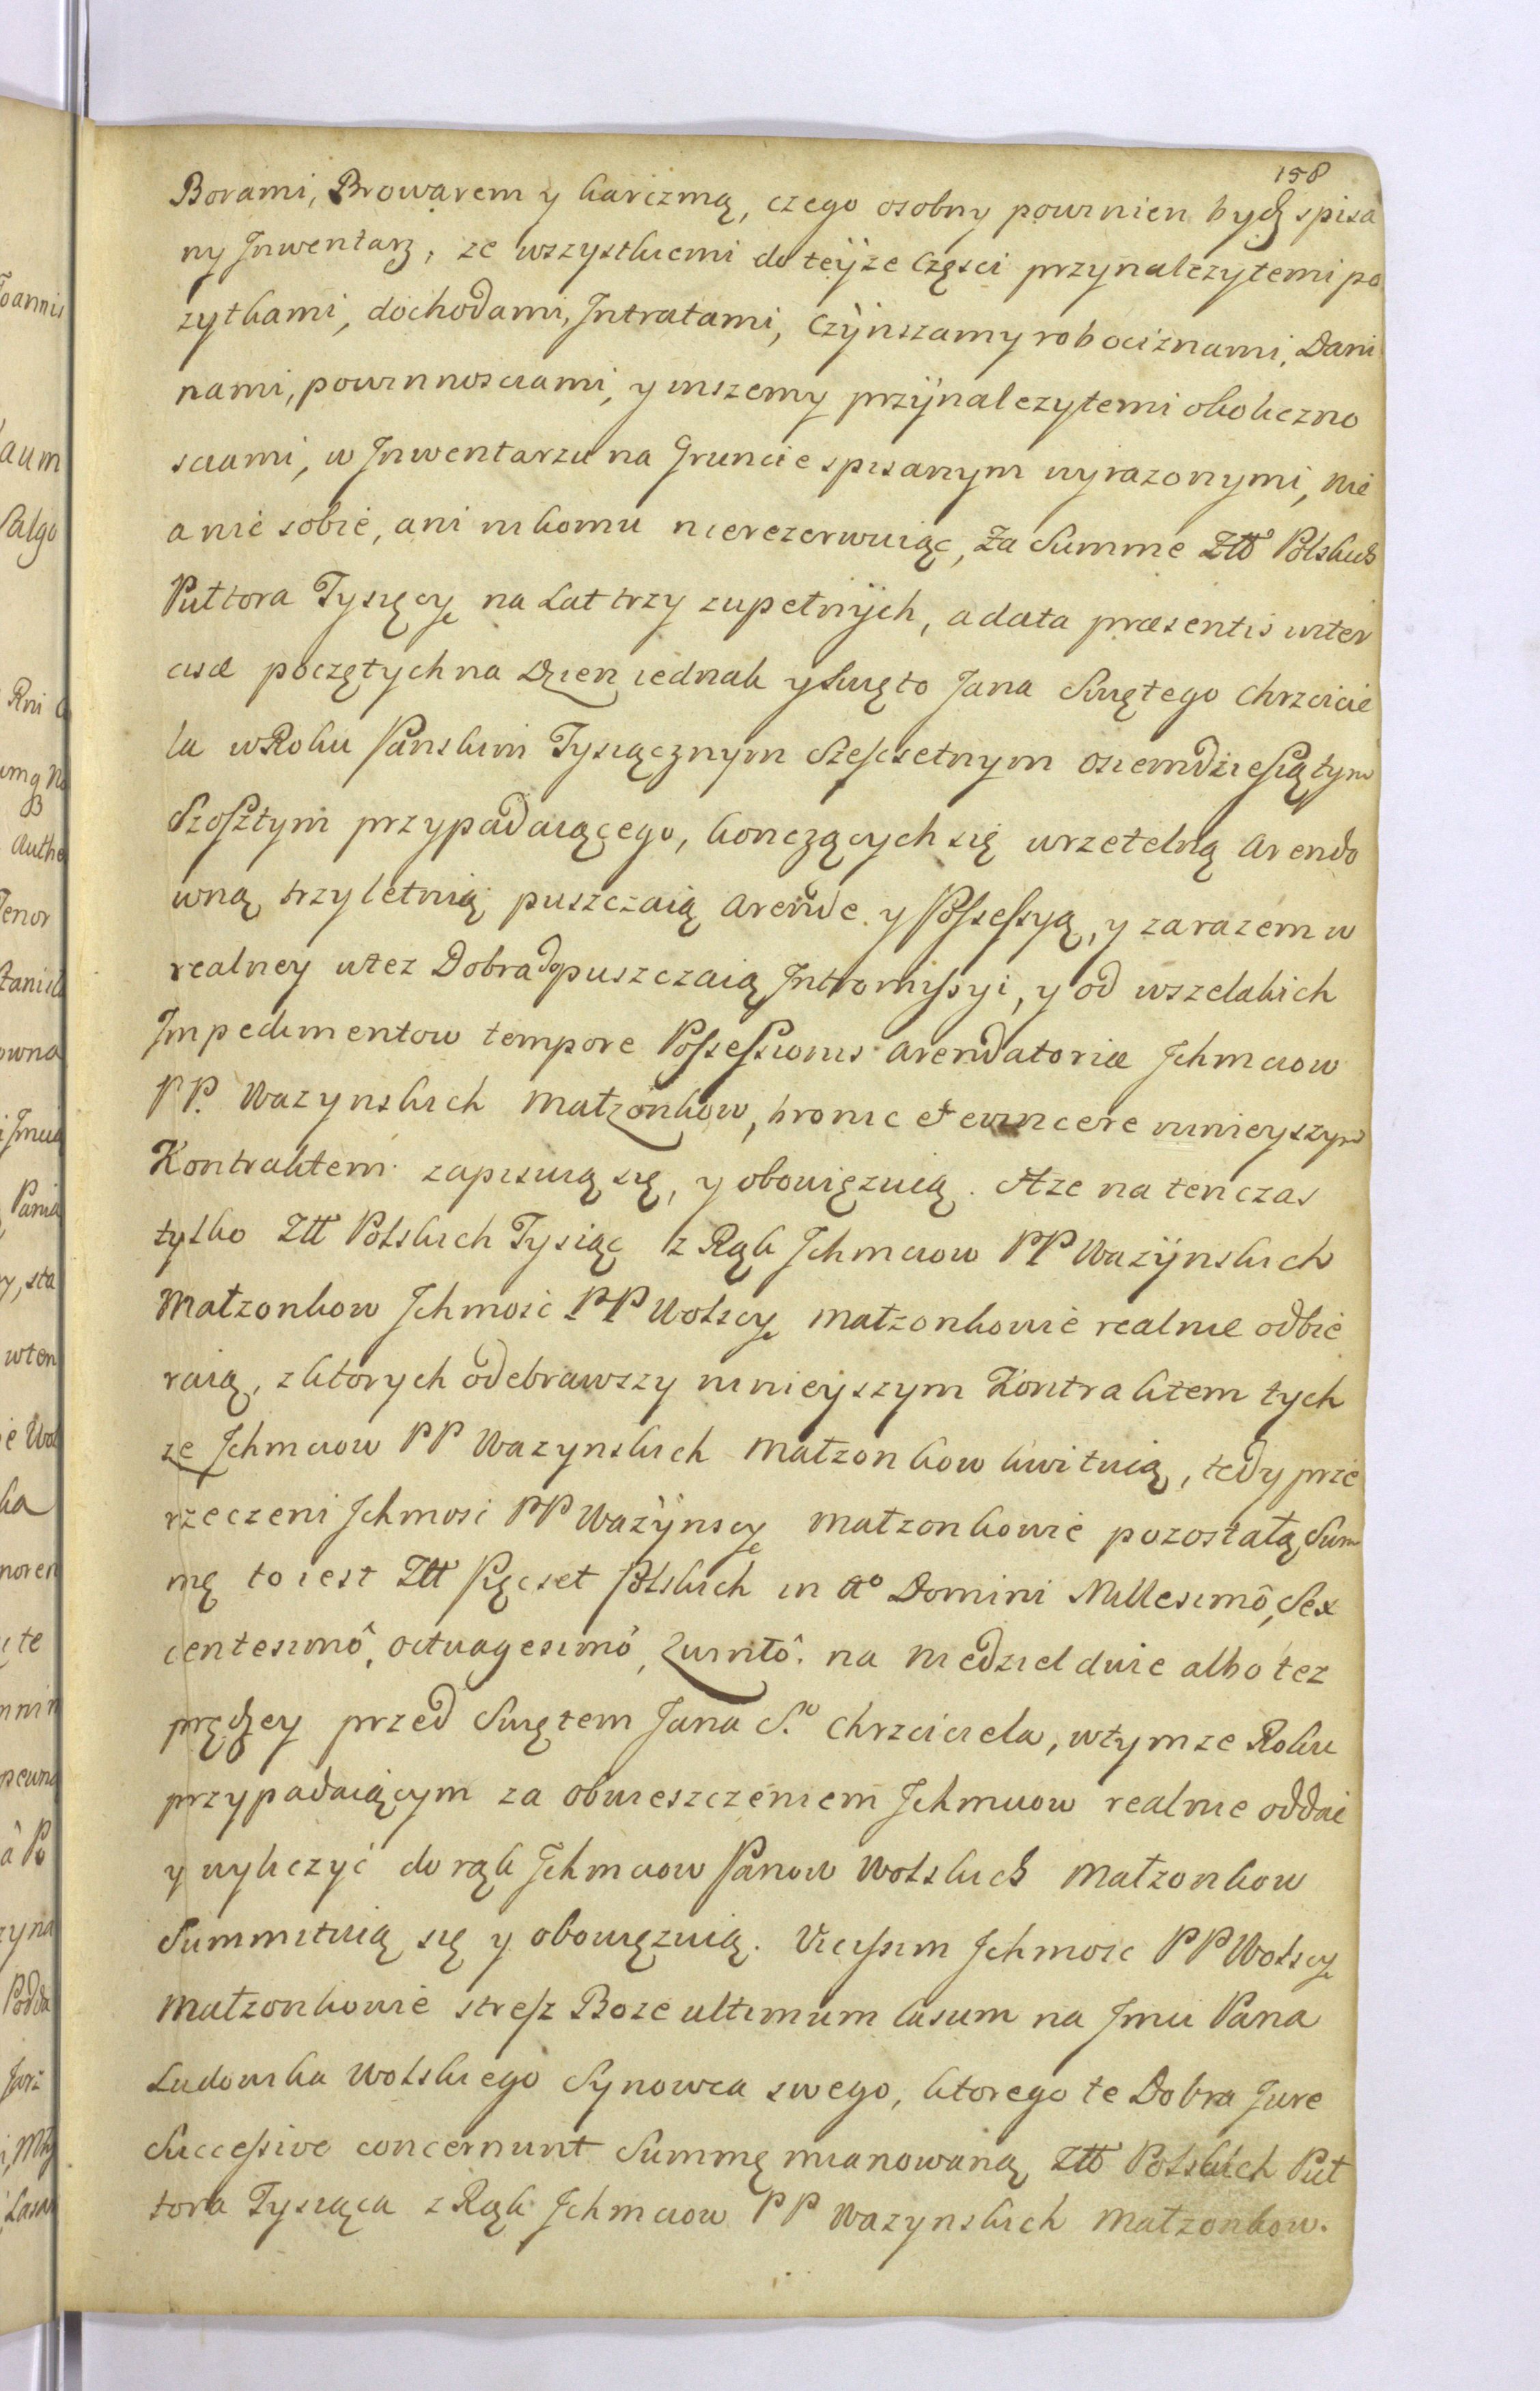 158
Borami, Browarem y karczmą, czego osobny powinien bydź spisa
ny Jnwentarz, ze wszystkiemi do teyze Częsci przynalezytemi po
zytkami, dochodami, Jntratami, Czynszamy robociznami, Dani
nami, powinnosciami, y inszemy przynalezytemi okoliczno
sciami, w Jnwentarzu na Gruncie spisanym wyrazonymi, nic
a nic sobie, ani nikomu nierezerwuiąc, Za Summe Złł Polskich
Pułtora Tysięcy na Lat trzy zupełnych, a data præsentis inter
cisæ poczętych na Dzien iednak y Swięto Jana Swiętego Chrzcicie
la w Roku Panskim Tysiącznym Szescsetnym osiemdziesiątym
Szosztym przypadaiącego, konczących się w rzetelną Arendo
wną trzyletnią puszczaią Arende y Possessyą, y zarazem w
realney w tez Dobra dopuszczaią Jntromissyi, y od wszelakich
Jmpedimentow tempore Possessionis Arendatoriæ Jchmciow
PP. Wazynskich Małzonkow, bronic et evincere ninieyszym
Kontraktem zapisuią się, y obowięzuią. A ze na tenczas
tylko Złł Polskich Tysiąc z Rąk Jchmciow PP Wazynskich
Małzonkow Jchmosc PP Wolscy Małzonkowie realnie odbie
raią, z ktorych odebrawszy ninieyszym Kontraktem tych
ze Jchmciow PP Wazynskich Małzonkow kwituią, tedy prze
rzeczeni Jchmosc PP Wazynscy Małzonkowie pozostałą Sum
mę to iest Złł Pięcset Polskich in Aº Domini Millesimô, Sex
centesimô, octuagesimô, Quintô. na niedziel dwie albo tez
prędzey przed Swiętem Jana S.º Chrzciciela, w tymze Roku
przypadaiącym za obwieszczeniem Jchmciow realnie oddac
y wyliczyć do rąk Jchmciow Panow Wolskich Małzonkow
Summituią się y obowięzuią. Vicissim Jchmosc PP Wolscy
Małzonkowie strzesz Boze ultimum casum na Jmci Pana
Ludowika Wolskiego Synowca swego, ktorego te Dobra Jure
Successivo concernunt Summę mianowaną Złł Polskich Puł
tora Tysiąca z Rąk Jchmciow PP Wazynskich Małzonkow.